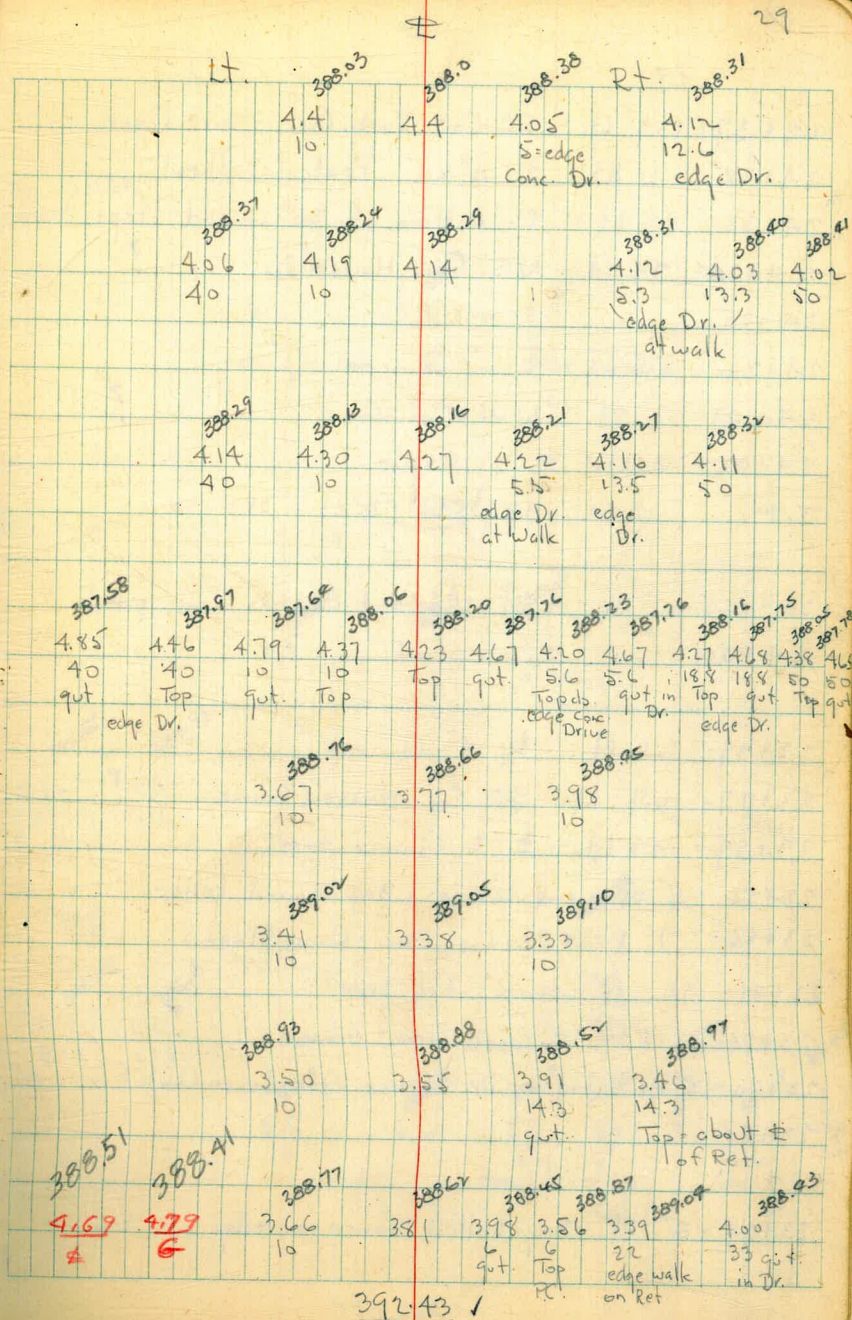 29
℄
Lt. Rt.
388.03 388.0 388.38 388.31
4.4 4.4 4.05 4.12
10 5=edge 12.6
Conc. Dr. edge Dr.
388.37 388.24 388.29 388.31 388.40 388.41
4.06 4.19 4.14 4.12 4.03 4.02
40 10 10 5.3 13.3 50
edge Dr.
at walk
388.29 388.13 388.16 388.21 388.27 388.32
4.14 4.30 4.27 4.22 4.16 4.11
40 10 5.5 13.5 50
edge Dr. edge
at walk Dr.
387.58 387.97 387.64 388.06 388.20 387.76 388.23 387.76 388.16 387.75 388.05
4.85 4.46 4.79 4.37 4.23 4.67 4.20 4.67 4.27 4.68 4.38
40 40 10 10 Top gut. 5.6 5.6 18.8 18.8 50 50
gut Top gut. Top Top gut in Top gut. Top gut
edge Dr. edge Conc. Dr. edge Dr.
Drive
388.76 388.66 388.45
3.67 3.77 3.98
10 10
389.02 389.05 389.10
3.41 3.38 3.33
10 10
388.93 388.88 388.52 388.97
3.50 3.55 3.91 3.46
10 14.3 14.3
gut. Top = about ℄
of Ret.
388.51 388.41 388.77 388.62 388.45 388.87 389.04 388.43
4.69 4.79 3.66 3.81 3.98 3.56 3.39 4.00
℄ G 10 6 6 22 33 gut.
gut. Top edge walk in Dr.
P.C. on Ret
392.43 ✓